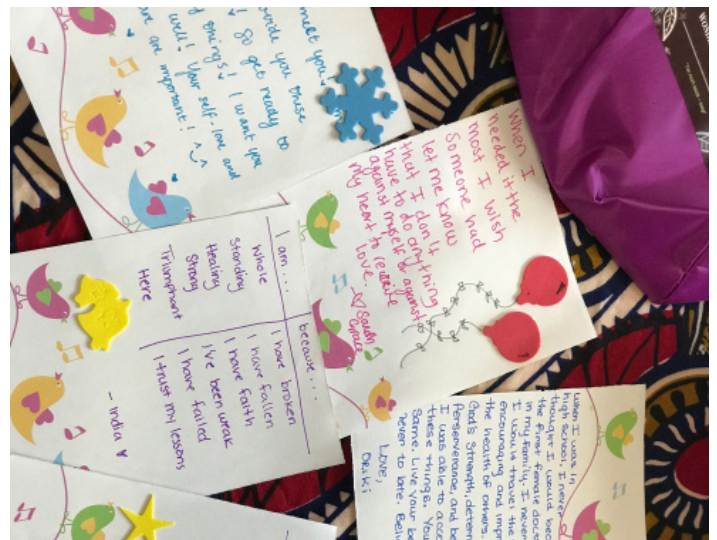 meet you!
wards you these
! So get ready to
things! I want you
well! Your self-love and
are are important! ^_^
When I
needed it the
most I wish
someone had
let me know
that I don't
have to do anything
against myself or against
my heart to receive
love.
Sarah
Grace
I am.... because....
Whole I have broken
Standing I have fallen
Healing I have faith
Strong I've been weak
Triumphant I have failed
Here I trust my lessons
- India
When I was in
high school, I never
thought I would bec
the first female doc
in my family. I never
I would travel the
encouraging and impr
the health of others.
God's strength, determ
Perserverance, and be
I was able to acco
these things. You
Same. Live your be
never to late. Beli
Love,
Oriki